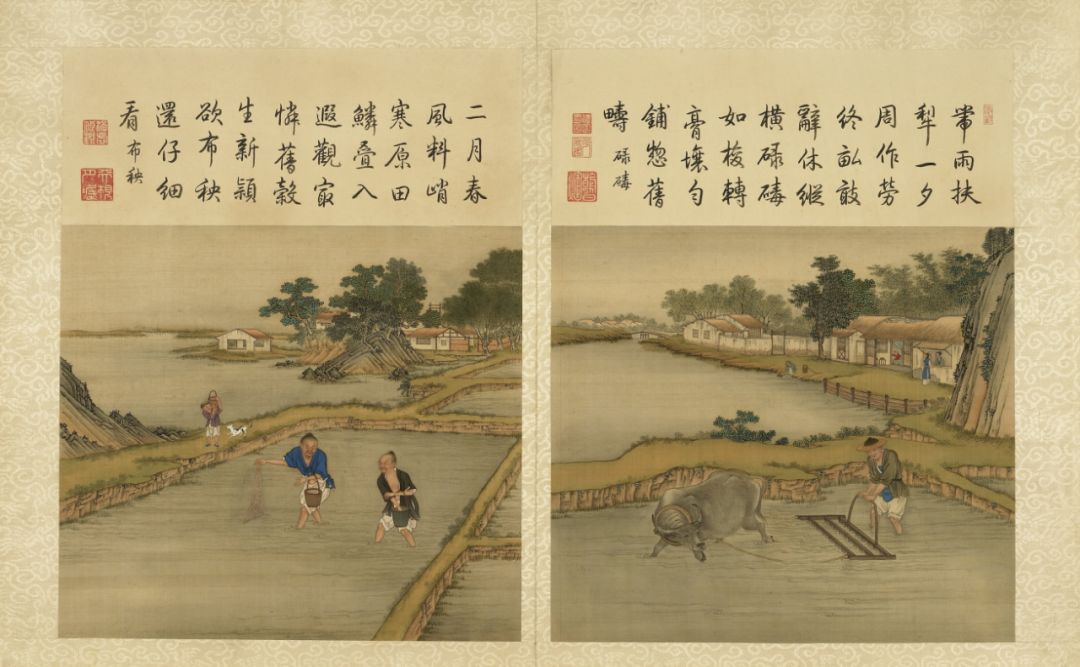 帶雨扶
犂一夕
周作勞
終畝敢
辭休縱
橫碌碡
如梭轉
膏壤勻
鋪惣舊
疇 碌碡
二月春
風料峭
寒原田
鱗疊入
遐觀㝡
憐舊穀
生新穎
欲布秧
還仔細
看 布秧